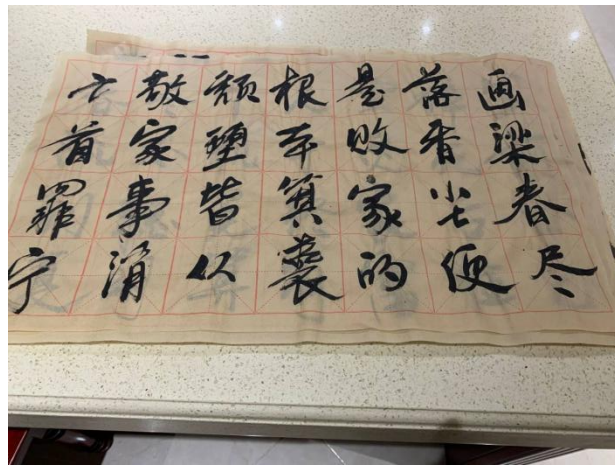 画梁春尽
落香尘便
是败家的
根本箕裘
颓堕皆从
敬家事消
亡首罪宁